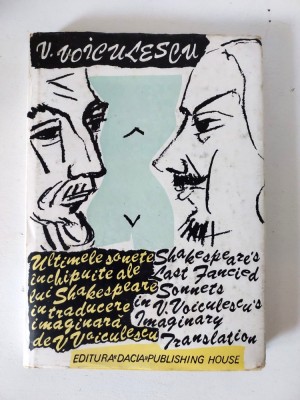 V. VOICULESCU
Ultimele sonete
închipuite ale
lui Shakespeare
în traducere
imaginară
de V. Voiculescu
Shakespeare's
Last Fancied
Sonnets
in V. Voiculescu's
Imaginary
Translation
EDITURA•DACIA•PUBLISHING HOUSE